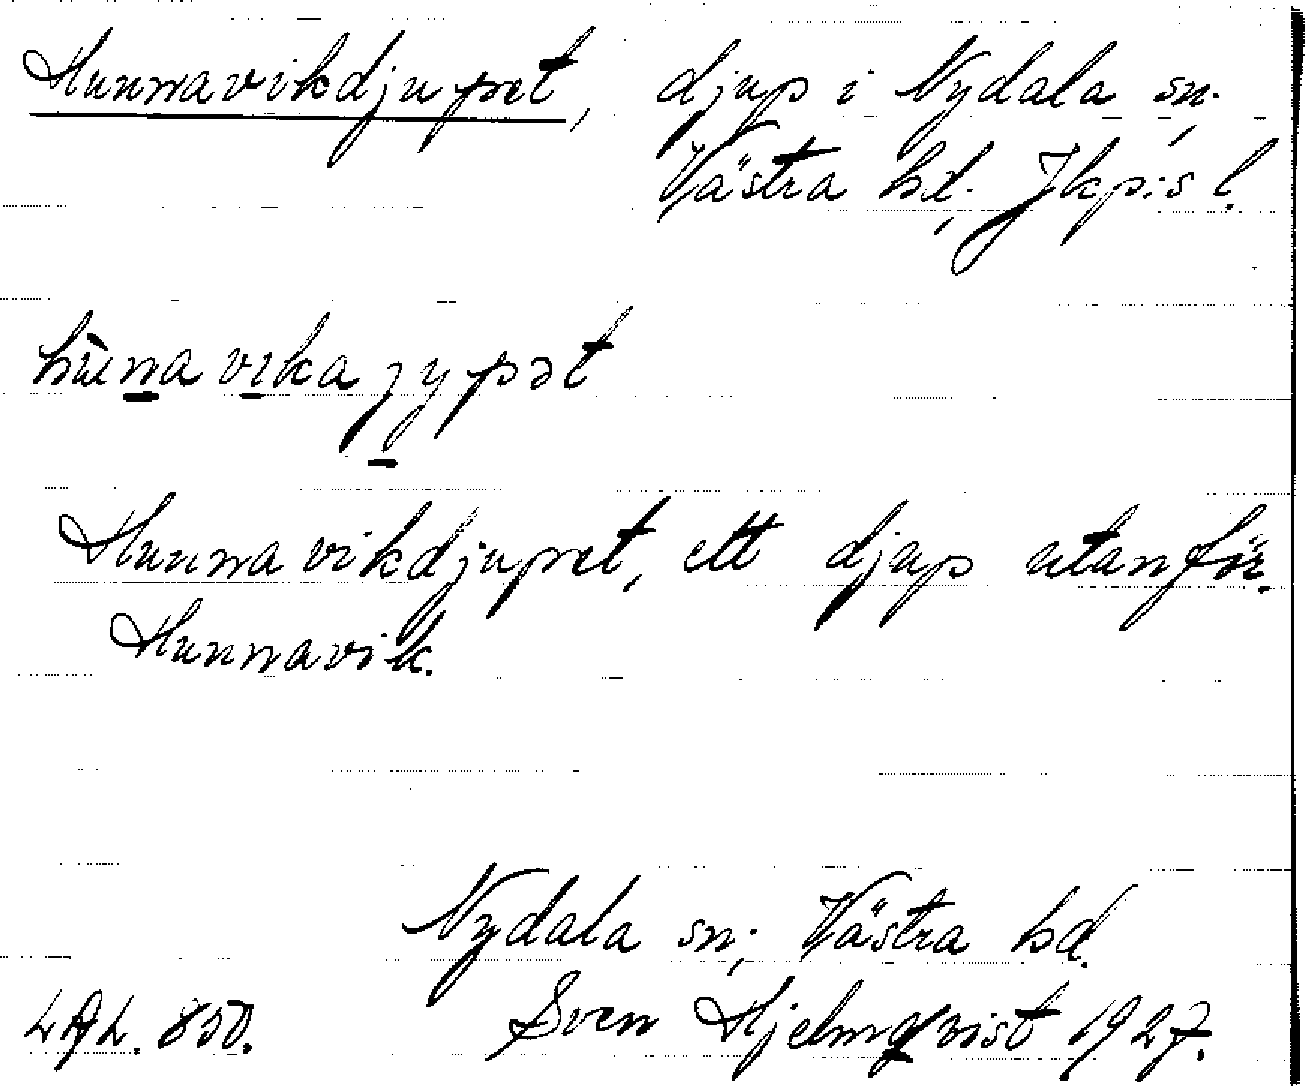 Hunnavikdjupet, djup i Nydala sn.,
Västra hd., Jkp:s l.
hùnavikajypət
Hunnavikdjupet, ett djup utanför
Hunnavik.
Nydala sn; Västra hd.
LAL. 850. Sven Hjelmqvist 1927.